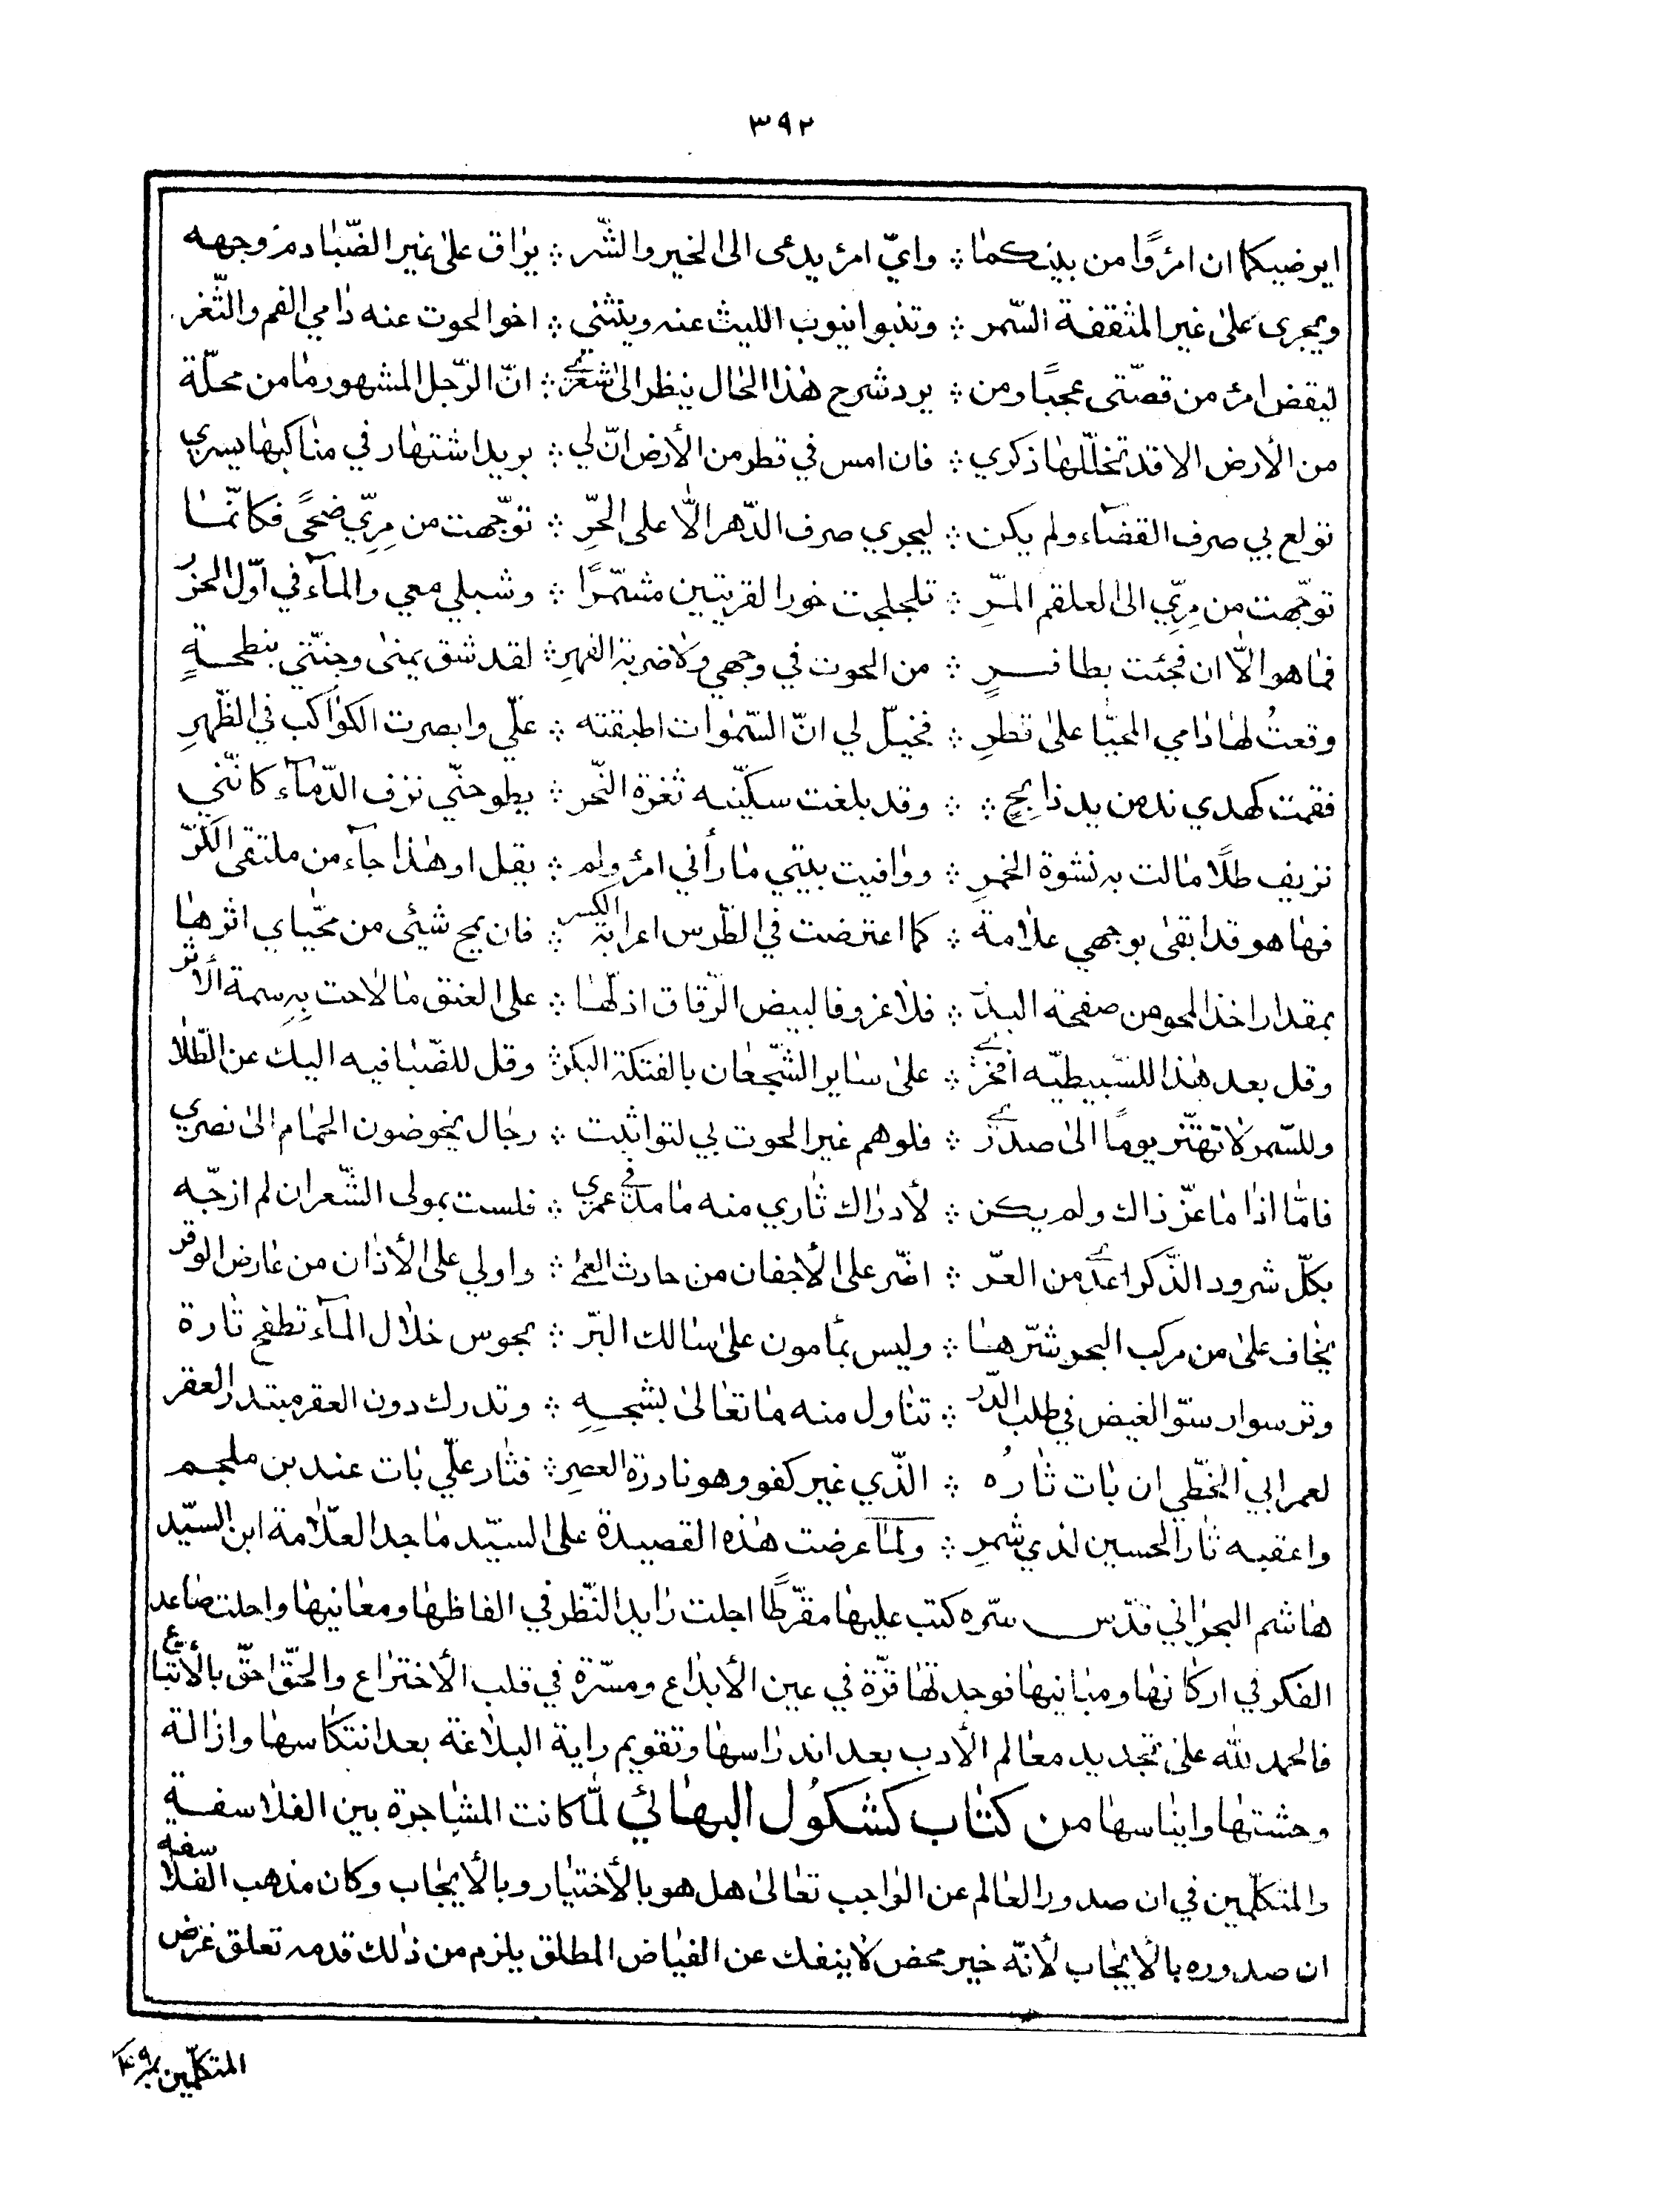 ٣٩٢
ايرضيكما ان امرؤًا من بينكما ؞ وايّ امرء يدعى الى الخير والشّر ؞ يراق على غير الضّبا دم وجهه
ويجرى على غير المثقفة السّمر ؞ وتنبو نيوب الليث عنه وينثنى ؞ اخو الحوت عنه دامي الفم والثّغر
ليقض امرء من قصّتى عجبًا ومن ؞ يرد شرح هذا الحال ينظر الى شعري ؞ انّ الرّجل المشهور ما من محلّة
من الأرض الا قد تخلّلها ذكري ؞ فان امس في قطر من الأرض انّ لي ؞ بريد اشتهار في مناكبها يسري
تولع بي صرف القضاء ولم يكن ؞ ليجري صرف الدّهر الّا على الحرّ ؞ توجّهت من مِرِّي ضحًى فكانّما
توجّهت من مِرِّي الى العلقم المرّ ؞ تلجلجت خور القريتين مشمّرًا ؞ وشبلي معي والمآء في اوّل الجزرُ
فما هو الّا ان فجئت بطافرٍ ؞ من الحوت في وجهي ولا ضربة الفهرِ ؞ لقد شق يمنى وجنتي بنطحةٍ
وقعتُ لها دامي المحيّا على قطرِ ؞ فخيّل لي انّ السّموات اطبقته ؞ عليّ وابصرت الكواكب في الظّهرِ
فقمت كهدي ند من يد ذابحٍ ؞ ؞ وقد بلغت سكّينه ثغرة النّحر ؞ يطوحني نزف الدّمآء كانّني
نزيف طلًا مالت به نشوة الخمرِ ؞ ووافيت بيتي ما رأني امرء ولم ؞ يقل او هذا جآء من ملتقى الكرّ
فها هو قد ابقى بوجهي علامة ؞ كما اعترضت في الطّرس اعرابة الكسر ؞ فان يمح شيئى من محيّاي اثرها
بمقدار اخذ المحو من صفحة البدر ؞ فلا غرو فالبيض الرّقاق اذلّها ؞ على العنق ما لاحت بِه سمة الأثر
وقل بعد هذا للسّبيطيّه افخري ؞ على ساير الشّجعان بالفتكة البكر ؞ وقل للضّبا فيه اليك عن الطّلا
وللسّمر لا تهتّز يومًا الى صدري ؞ فلو هم غير الحوت بي لتواثبت ؞ رجال يخوضون الحمام الى نصري
فامّا اذا ما عزّ ذاك ولم يكن ؞ لأدراك ثاري منه ما مدّ في عمري ؞ فلست بمولى الشّعر ان لم ازجّه
بكلّ شرود الذّكر اعدى من العرّ ؞ اضّر على الأجفان من حادث العمى ؞ واولي على الأذان من عارض الوقر
يخاف على من مركب البحر شرّها ؞ وليس بمأمون على سالك البرّ ؞ يجوس خلال المآء تطفح تارة
وترسوا رسوّ الغيض في طلب الدّر ؞ تناول منه ما تعالى بشجهِ ؞ وتدرك دون العقر مبتدر العقر
لعمر ابي الخطّي ان بات ثاره ؞ الّذي غير كفو وهو نادرة العصرِ ؞ فثار عليّ بات عند بن ملجم
واعقبه ثار الحسين لذي شمرِ ؞ ولمّا عرضت هذه القصيدة على السيّد ماجد العلّامة ابن السيّد
هاشم البحراني قدّس سّره كتب عليها مقّرظًا اجلت رايد النّظر في الفاظها ومعانيها واحلت صاعد
الفكر في اركانها ومبانيها فوجدتها قرّة في عين الأبداع ومسّرة في قلب الأختراع والحقّ احقّ بالأتباع
فالحمد لله على تجديد معالم الأدب بعد اندراسها وتقويم راية البلاغة بعد انتكاسها وازالة
وحشتها وايناسها من كتاب كشكول البهائي لمّا كانت المشاجرة بين الفلاسفة
والمتكلّمين في ان صدور العالم عن الواجب تعالى هل هو بالأختيار وبالأيجاب وكان مذهب الفلاسفه
ان صدوره بالأيجاب لأنّه خير محض لا ينفك عن الفياض المطلق يلزم من ذلك قدمه تعلق غرض
المتكلّمين